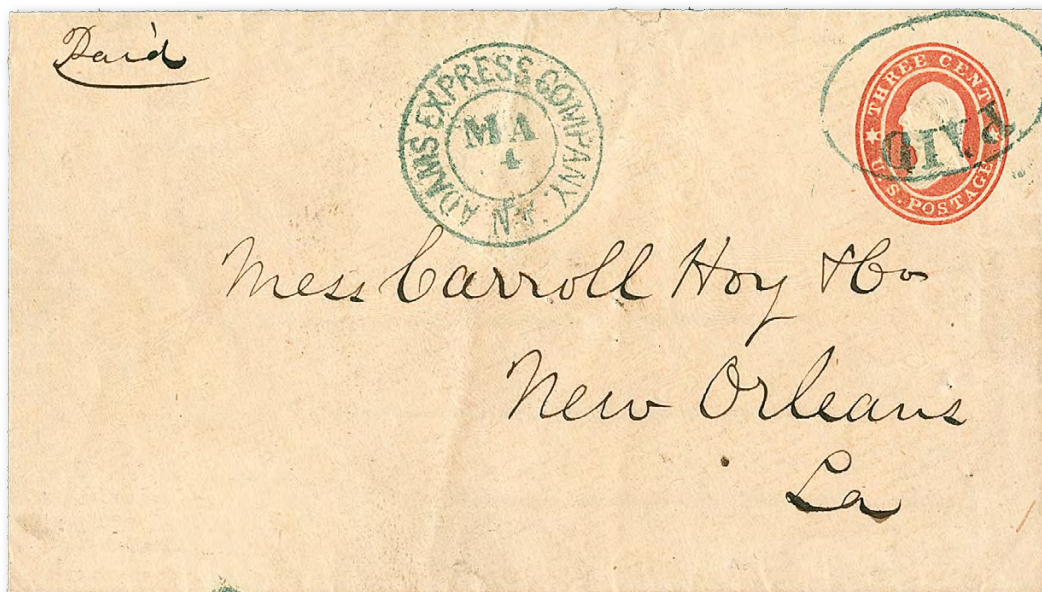 Paid
ADAMS EXPRESS COMPANY.
MA
4
THREE CENTS
PAID
U.S. POSTAGE
Mess Carroll Hoy & Co
New Orleans
La